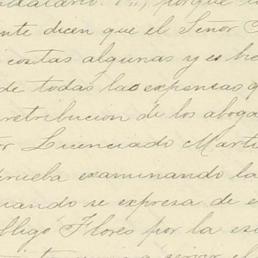 porque
nte dicen que el Señor
costas algunas y es he
de todas las expensas q
retribucion de los aboga
or Licenciado Marti
prueba examinando la
uando se expresa de e
bligó Flores por la es